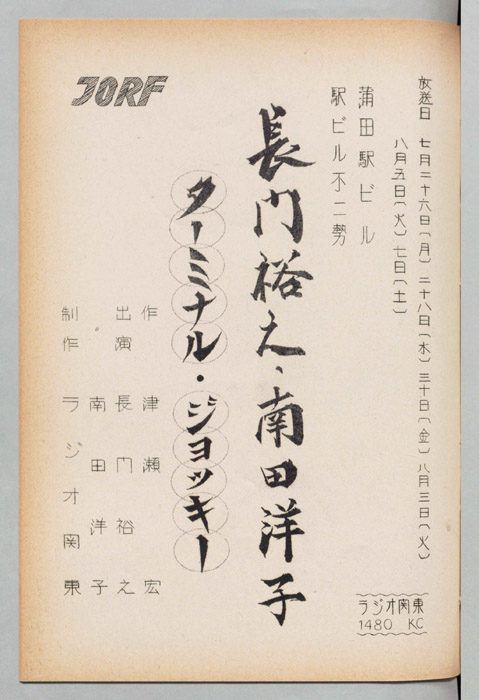 放送日 七月二十六日(月)二十八日(木)三十日(金)八月三日(火)
八月五日(火)七日(土)
蒲田駅ビル
駅ビル不二勢
長門裕之・南田洋子
ターミナル・ジョッキー
作 津瀬宏
出演 長門裕之
〃 南田洋子
制作 ラジオ関東
JORF
ラジオ関東
1480 KC